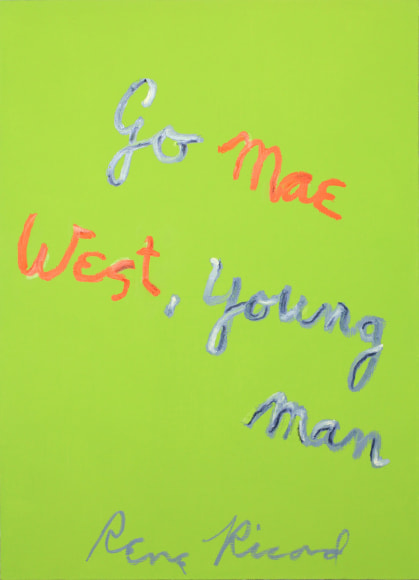 Go Mae
West, Young
man
Rene Ricard